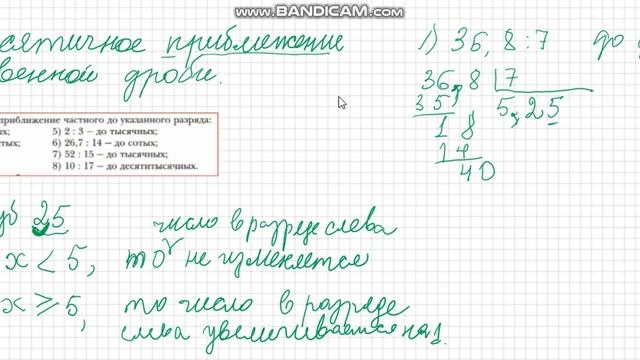 www.BANDICAM.com
приближение
дроби.
1) 36,8 : 7 до
36,8 | 7
35, 5,25
1 8
1 4
40
приближение частного до указанного разряда:
5) 2 : 3 — до тысячных;
6) 26,7 : 14 — до сотых;
7) 52 : 15 — до тысячных;
8) 10 : 17 — до десятитысячных.
25 число в разряде слева
x < 5, то не изменяется
x ≥ 5, то число в разряде
слева увеличивается на 1.